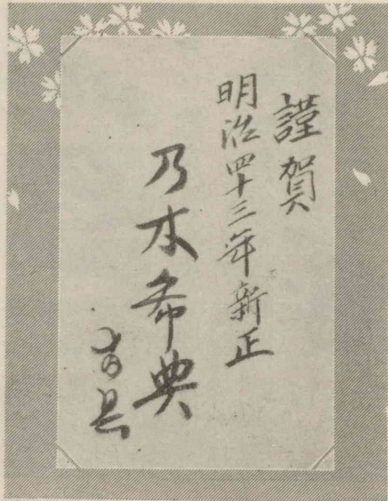 謹賀
明治四十三年新正
乃木希典